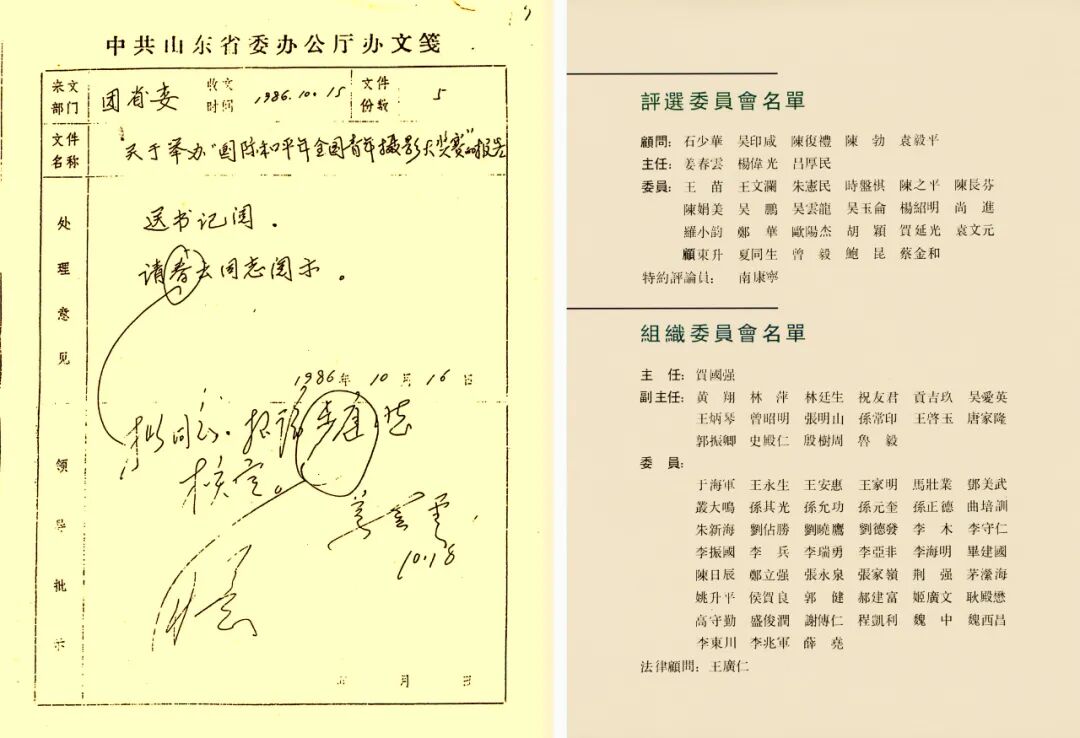 中共山东省委办公厅办文笺
来文部门 团省委 收文时间 1986.10.15 文件份数 5
文件名称 关于举办"国际和平年全国青年摄影大奖赛"的报告
处理意见
送书记阅.
请春云同志阅示。
1986年10月16日
领导批示
拟同意.
核定。
姜春云
10.18
年 月 日
評選委員會名單
顧問：石少華 吴印咸 陳復禮 陳 勃 袁毅平
主任：姜春雲 楊偉光 吕厚民
委員：王 苗 王文瀾 朱憲民 時盤棋 陳之平 陳長芬
陳娟美 吴 鵬 吴雲龍 吴玉侖 楊紹明 尚 進
羅小韵 鄭 華 歐陽杰 胡 穎 賀延光 袁文元
顧東升 夏同生 曾 毅 鮑 昆 蔡金和
特約評論員： 南康寧
組織委員會名單
主 任：賀國强
副主任：黄 翔 林 萍 林廷生 祝友君 貢吉玖 吴愛英
王炳琴 曾昭明 張明山 孫常印 王啓玉 唐家隆
郭振卿 史殿仁 殷樹周 魯 毅
委 員：
于海軍 王永生 王安惠 王家明 馬壯業 鄧美武
叢大鳴 孫其光 孫允功 孫元奎 孫正德 曲培訓
朱新海 劉佔勝 劉曉鷹 劉德發 李 木 李守仁
李振國 李 兵 李瑞勇 李亞非 李海明 畢建國
陳日辰 鄭立强 張永泉 張家嶺 荆 强 茅瀠海
姚升平 侯賀良 郭 健 郝建富 姬廣文 耿殿懋
高守勤 盛俊潤 謝傳仁 程凱利 魏 中 魏西昌
李東川 李兆軍 薛 堯
法律顧問：王廣仁